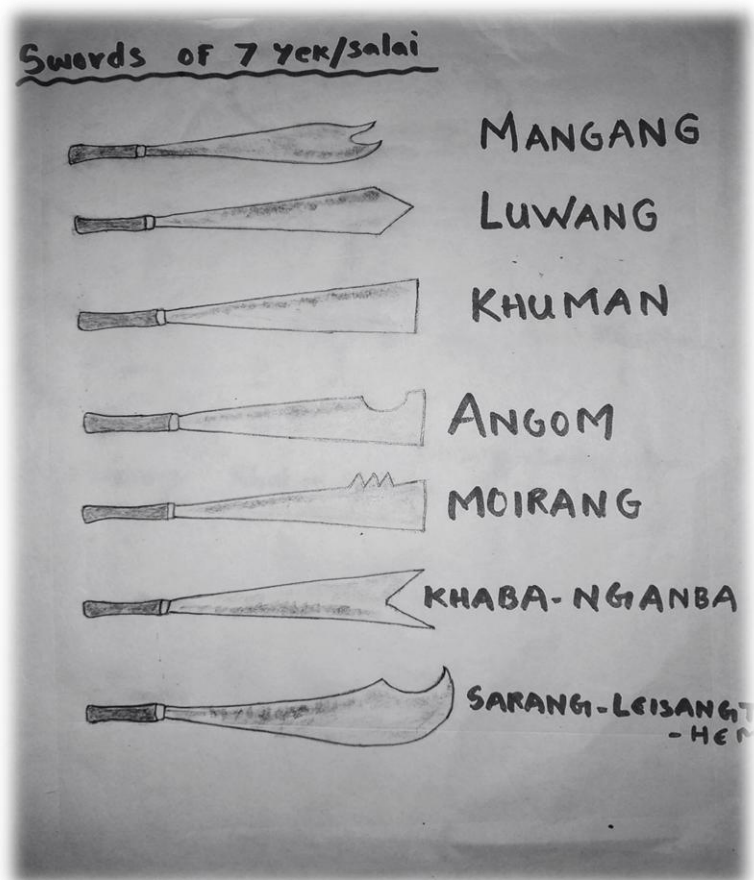 Swords of 7 Yek/salai
MANGANG
LUWANG
KHUMAN
ANGOM
MOIRANG
KHABA-NGANBA
SARANG-LEISANGT
-HEM